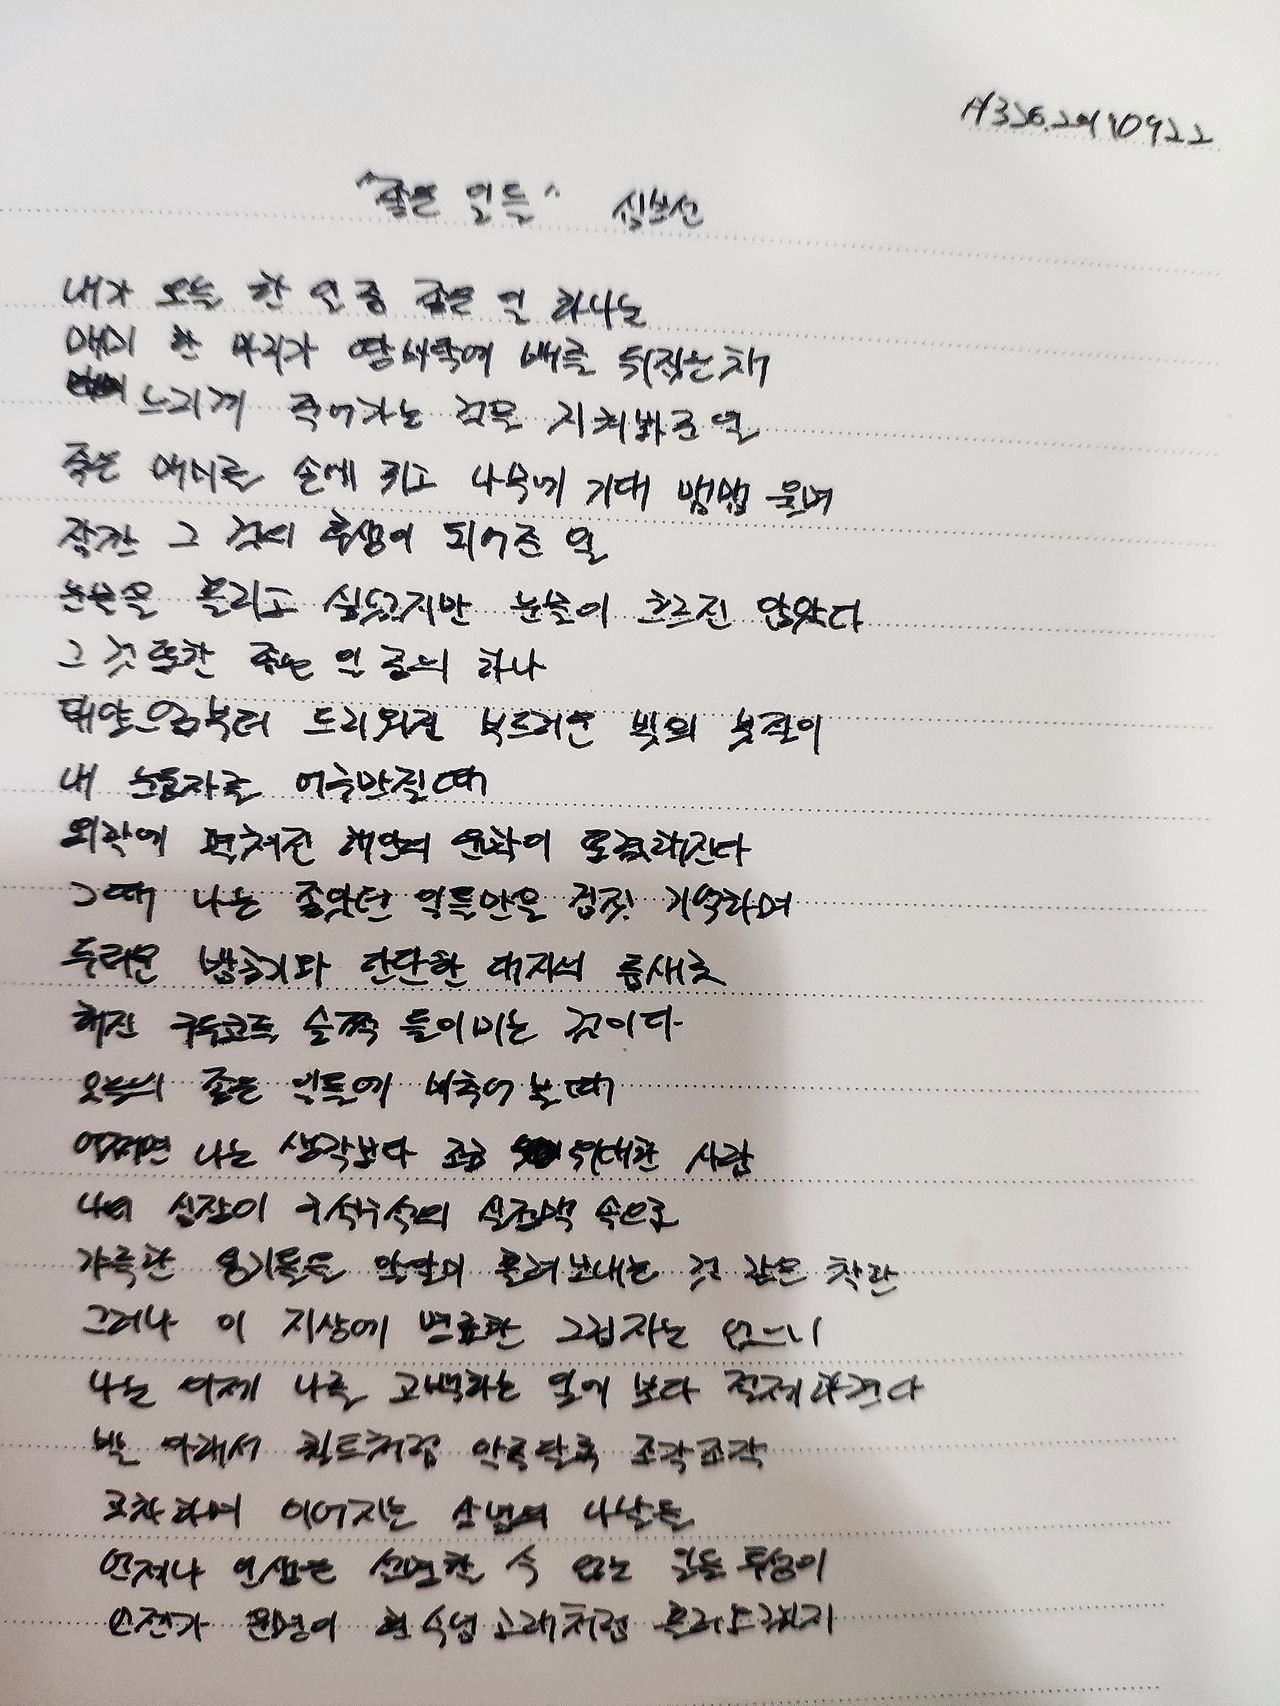 #326. 20110922
"좋은 일들" 심보선
내가 오늘 한 일 중 좋은 일 하나는
매미 한 마리가 땅바닥에 배를 뒤집은 채
느리게 죽어가는 것을 지켜봐준 일
죽은 매미를 손에 쥐고 나무에 기대 맴맴 울며
잠깐 그 것의 후생이 되어준 일
눈물을 흘리고 싶었지만 눈물이 흐르진 않았다
그것 또한 좋은 일 중의 하나
태양으로부터 드리워진 부드러운 빛의 붓질이
내 눈동자를 어루만질 때
외곽에 펼쳐진 해안의 윤곽이 또렷해진다
그때 나는 좋았던 일들만을 짐짓 기억하며
두터운 밤공기와 단단한 대지의 틈새로
해진 구두코를 슬쩍 들이미는 것이다
오늘의 좋은 일들에 비추어볼 때
어쩌면 나는 생각보다 조금 위대한 사람
나의 심장이 구석구석의 실정맥 속으로
갸륵한 용기들을 알알이 흘려보내는 것 같은 착란
그러나 이 지상에 명료한 그림자는 없으니
나는 이제 나를 고백하는 일에 보다 적절하련다
발 아래서 퀼트처럼 알록달록 조각조각
교차하며 이어지는 상념의 나날들
언제나 인생은 설명할 수 없는 일들 투성이
언젠가 운명이 흰수염고래처럼 흘러오겠지